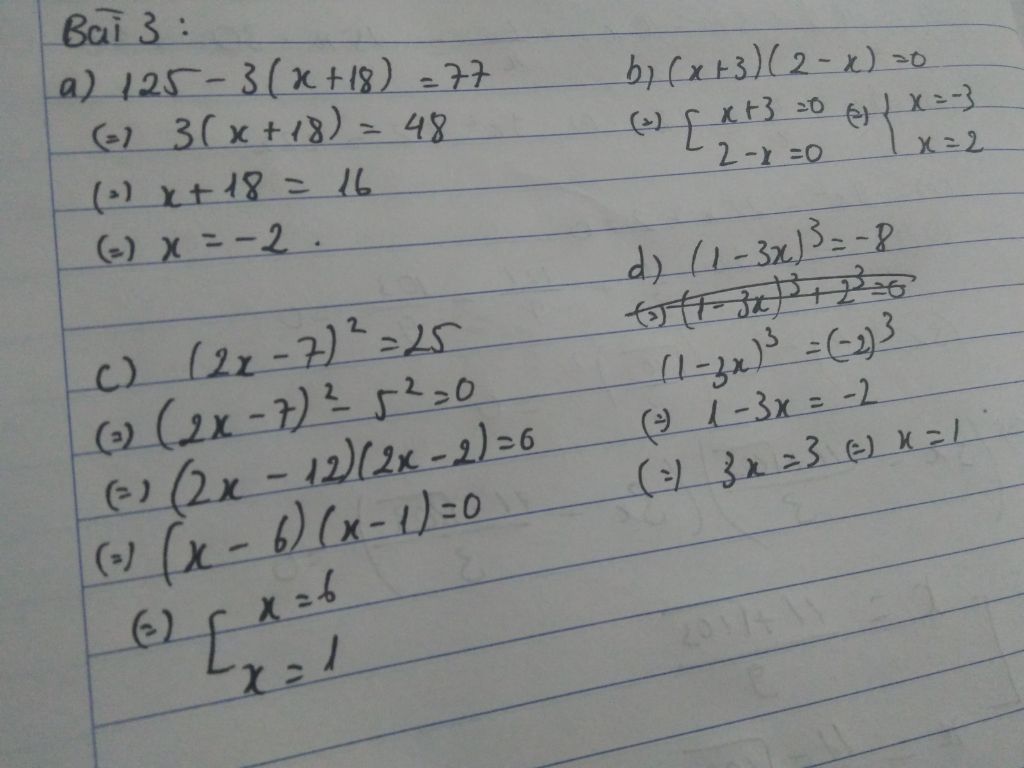 Bài 3 :
a) 125 - 3(x+18) = 77
(=) 3(x+18) = 48
(=) x + 18 = 16
(=) x = -2 .
b) (x+3)(2-x) = 0
(=) [ x+3 = 0 (=) { x = -3
2-x = 0 x = 2
c) (2x-7)² = 25
(=) (2x-7)² - 5² = 0
(=) (2x-12)(2x-2) = 0
(=) (x-6)(x-1) = 0
(=) [ x = 6
x = 1
d) (1-3x)³ = -8
(=) (1-3x)³ + 2³ = 0
(1-3x)³ = (-2)³
(=) 1-3x = -2
(=) 3x = 3 (=) x = 1